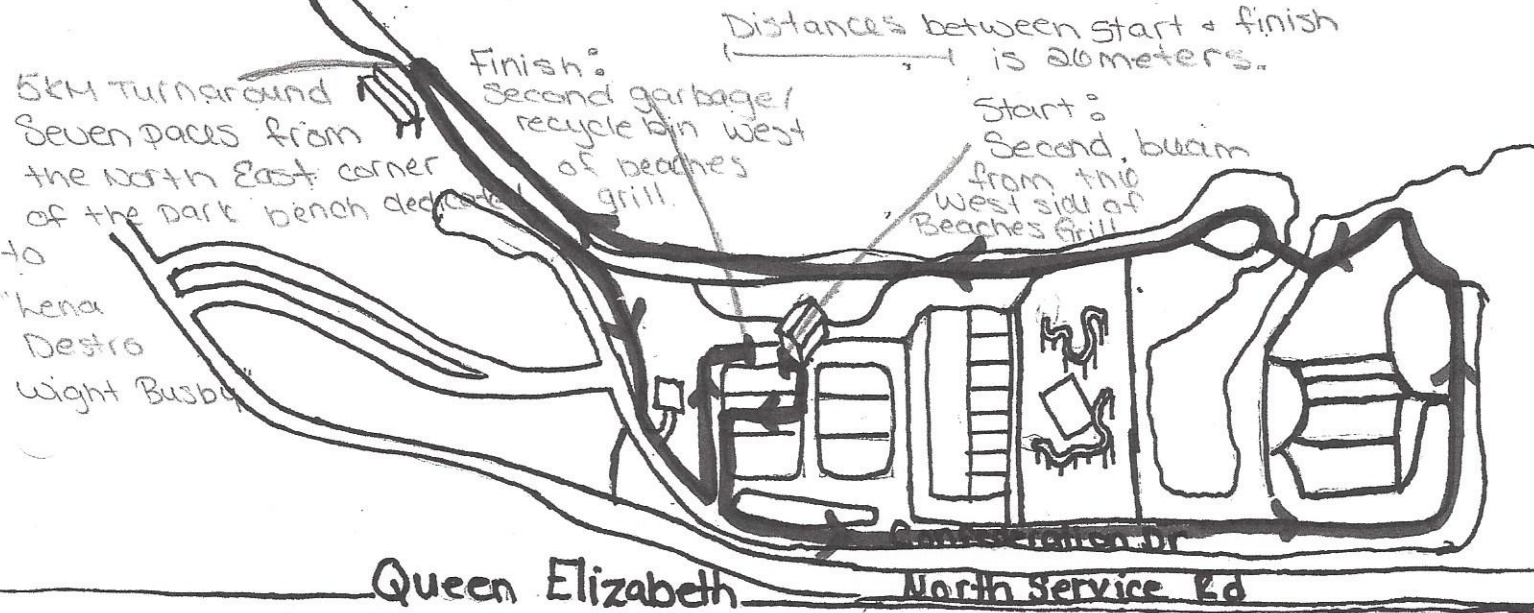 Distances between start & finish
is 26 meters.
5KM Turnaround
Seven paces from
the North East corner
of the Dark bench dedicated
to
"Lena
Destro
Wight Busby"
Finish:
second garbage/
recycle bin west
of beaches
grill
Start:
Second beam
from the
west side of
Beaches Grill
Confederation Dr
Queen Elizabeth
North Service Rd